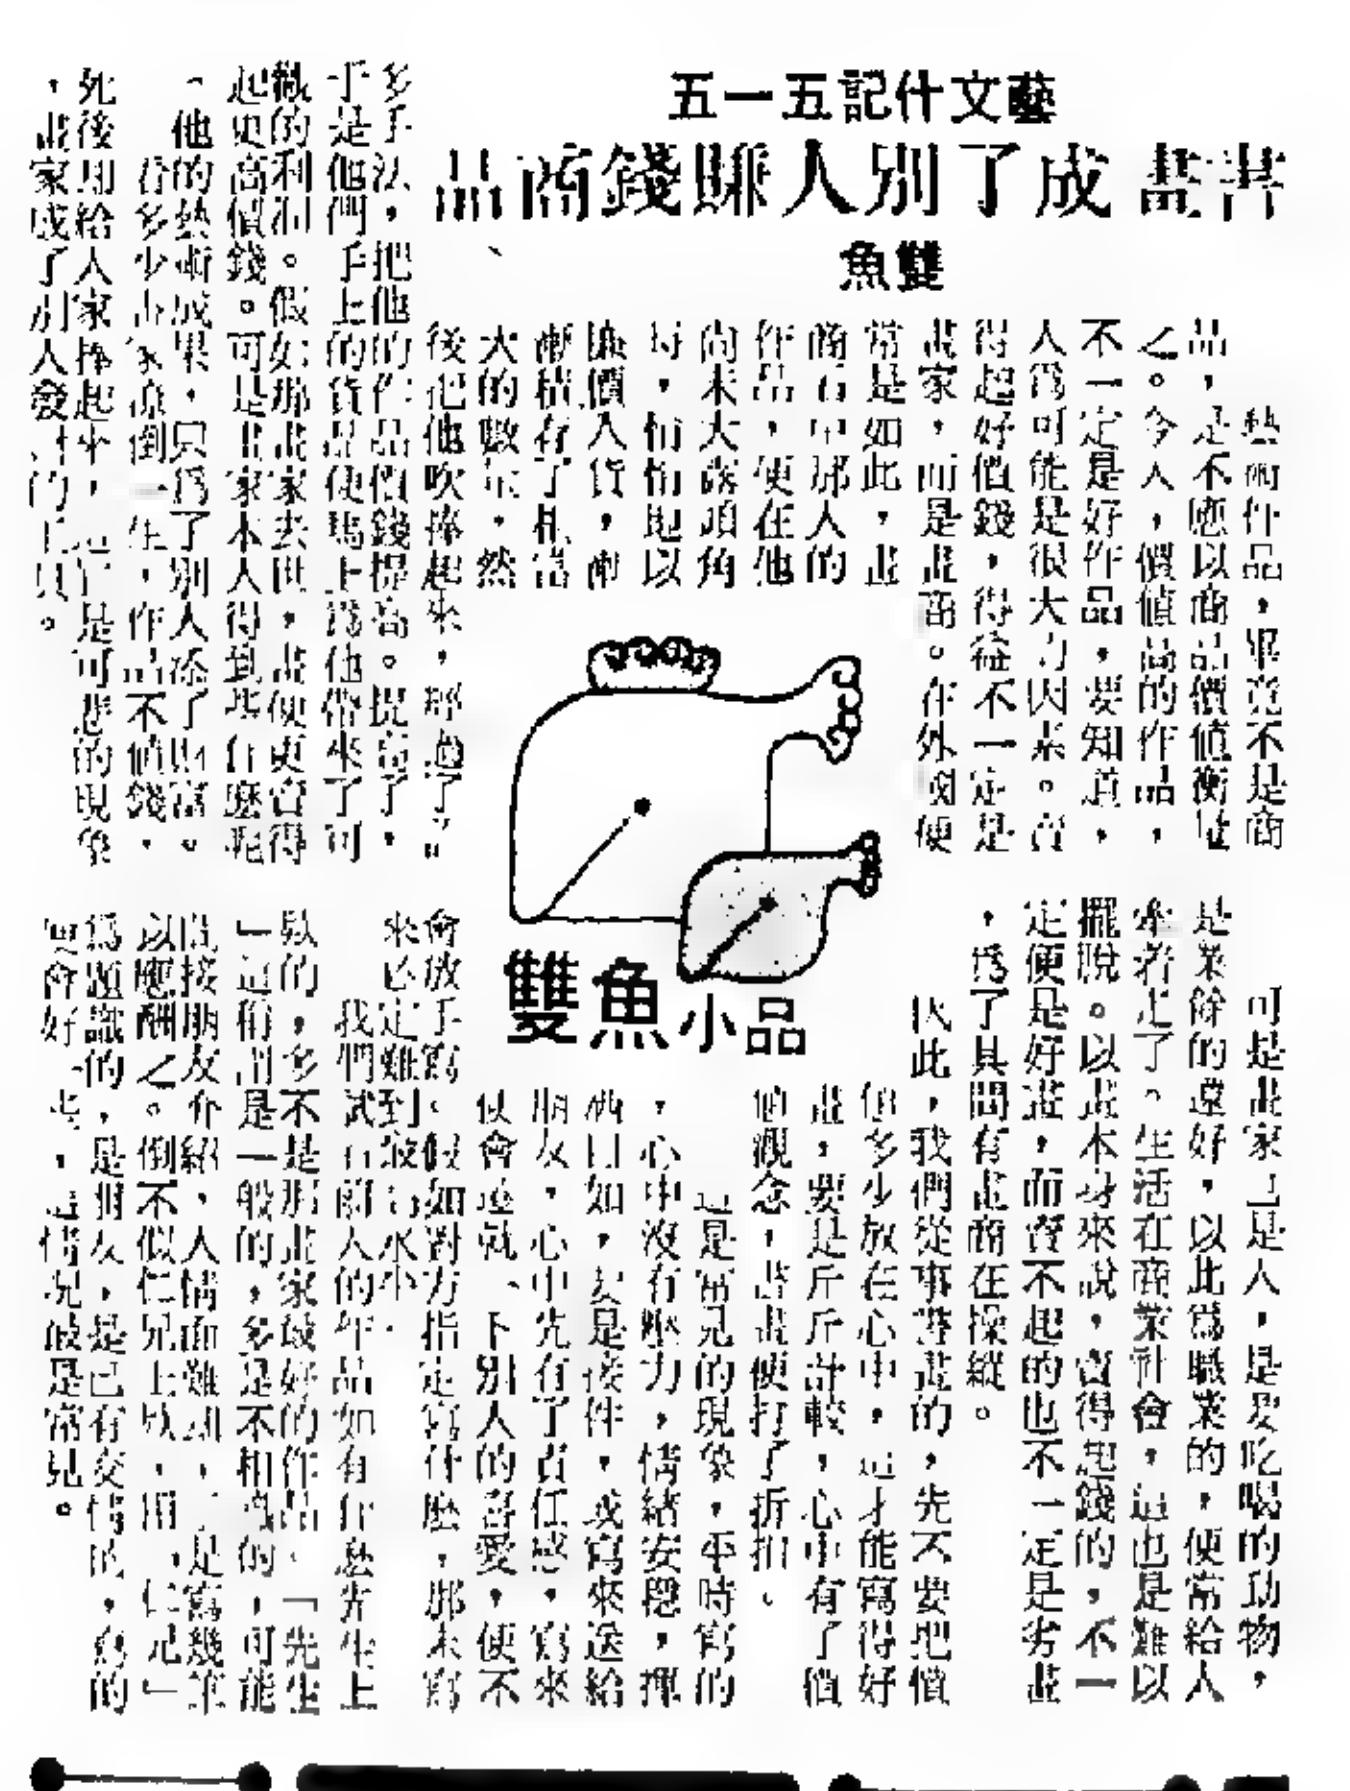 藝文什記五一五
書畫成了別人賺錢商品
雙魚
藝術作品，畢竟不是商
品，是不應以商品價值衡量
之。今人，價值高的作品，
不一定是好作品，要知道，
人為可能是很大的因素。賣
得起好價錢，得益不一定是
畫家，而是畫商。在外國便
常是如此，畫
商看中那人的
作品，便在他
尚未大露頭角
時，悄悄地以
廉價入貨，漸
漸積存了相當
大的數量，然
後把他吹捧起來，經過了
多手法，把他的作品價錢提高。提高了，
于是他們手上的貨品便馬上為他帶來了可
觀的利潤。假如那畫家去世，畫便更賣得
起更高價錢。可是畫家本人得到些什麼呢
他的藝術成果，只為了別人添了財富。
看多少畫家潦倒一生，作品不值錢，
死後却給人家捧起來，這宗是可悲的現象
，畫家成了別人發財的工具。
可是畫家也是人，是要吃喝的動物，
是業餘的還好，以此為職業的，便常給人
牽著走了。生活在商業社會，這也是難以
擺脫。以畫本身來說，賣得起錢的，不一
定便是好畫，而賣不起的也不一定是劣畫
，為了其間有畫商在操縱。
因此，我們從事書畫的，先不要把價
值多少放在心中，這才能寫得好
畫，要是斤斤計較，心中有了價
值觀念，書畫便打了折扣。
這是常見的現象，平時寫的
，心中沒有壓力，情緒安穩，揮
洒自如，要是接件，或寫來送給
朋友，心中先有了責任感，寫來
便會遷就、下別人的喜愛，便不
會放手寫。假如對方指定寫什麼，那末寫
來必定難到最高水準。
我們試看前人的作品如有什麼先生上
款的，多不是那畫家最好的作品。「先生
」這稱謂是一般的，多是不相識的，可能
以應酬之。倒不似仁兄上款，用「仁兄」
為題識的，是朋友，是已有交情的，寫的
更會好一些，這情況最是常見。
雙魚小品